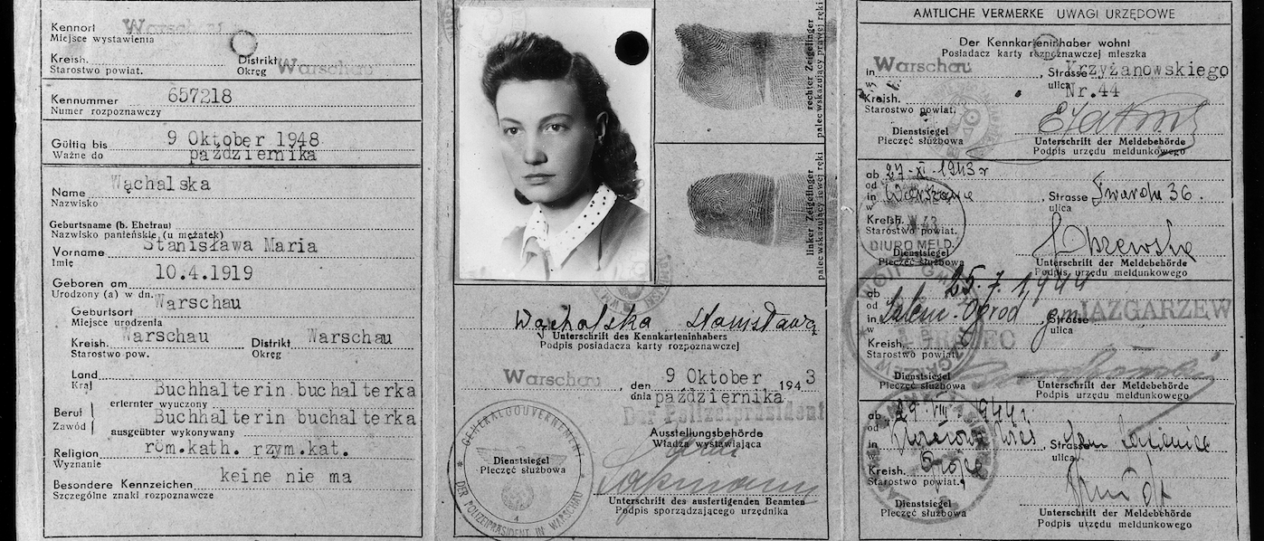 Kennort Warschau
Miejsce wystawienia
Kreish. Distrikt Warschau
Starostwo powiat. Okręg
Kennummer 657218
Numer rozpoznawczy
Gültig bis 9 Oktober 1948
Ważne do października
Name Wąchalska
Nazwisko
Geburtsname (b. Ehefrau)
Nazwisko panieńskie (u mężatek)
Vorname Stanisława Maria
Imię
Geboren am 10.4.1919
Urodzony (a) w dn.
Geburtsort Warschau
Miejsce urodzenia
Kreish. Warschau Distrikt Warschau
Starostwo pow. Okręg
Land
Kraj
Beruf Buchhalterin buchalterka
Zawód erlernter wyuczony
Buchhalterin buchalterka
ausgeübter wykonywany
Religion röm.kath. rzym.kat.
Wyznanie
Besondere Kennzeichen keine nie ma
Szczególne znaki rozpoznawcze
rechter Zeigefinger
palec wskazujący prawej ręki
linker Zeigefinger
palec wskazujący lewej ręki
Wąchalska Stanisława
Unterschrift des Kennkarteninhabers
Podpis posiadacza karty rozpoznawczej
Warschau, den 9 Oktober 1943
dnia października
Der Polizeipräsident
Ausstellungsbehörde
Władza wystawiająca
GENERALGOUVERNEMENT
Dienstsiegel
Pieczęć służbowa
DER POLIZEIPRÄSIDENT IN WARSCHAU
Unterschrift des ausfertigenden Beamten
Podpis sporządzającego urzędnika
AMTLICHE VERMERKE UWAGI URZĘDOWE
Der Kennkarteninhaber wohnt
Posiadacz karty rozpoznawczej mieszka
in Warschau, Strasse Krzyżanowskiego
w ulica Nr.44
Kreish.
Starostwo powiat.
Dienstsiegel Unterschrift der Meldebehörde
Pieczęć służbowa Podpis urzędu meldunkowego
ab 27-XI-1943 r
od
in Warszawa, Strasse Twarda 36.
w ulica
Kreish.
Starostwo powiat.
BIURO MELD.
Dienstsiegel Unterschrift der Meldebehörde
Pieczęć służbowa Podpis urzędu meldunkowego
ab 25.7.1944
od
in gm. JAZGARZEW
w Strasse
ulica
Kreish.
Starostwo powiat.
Dienstsiegel Unterschrift der Meldebehörde
Pieczęć służbowa Podpis urzędu meldunkowego
ab 29-VIII-1944 r.
od
in Strasse
w ulica
Kreish.
Starostwo powiat.
Dienstsiegel Unterschrift der Meldebehörde
Pieczęć służbowa Podpis urzędu meldunkowego